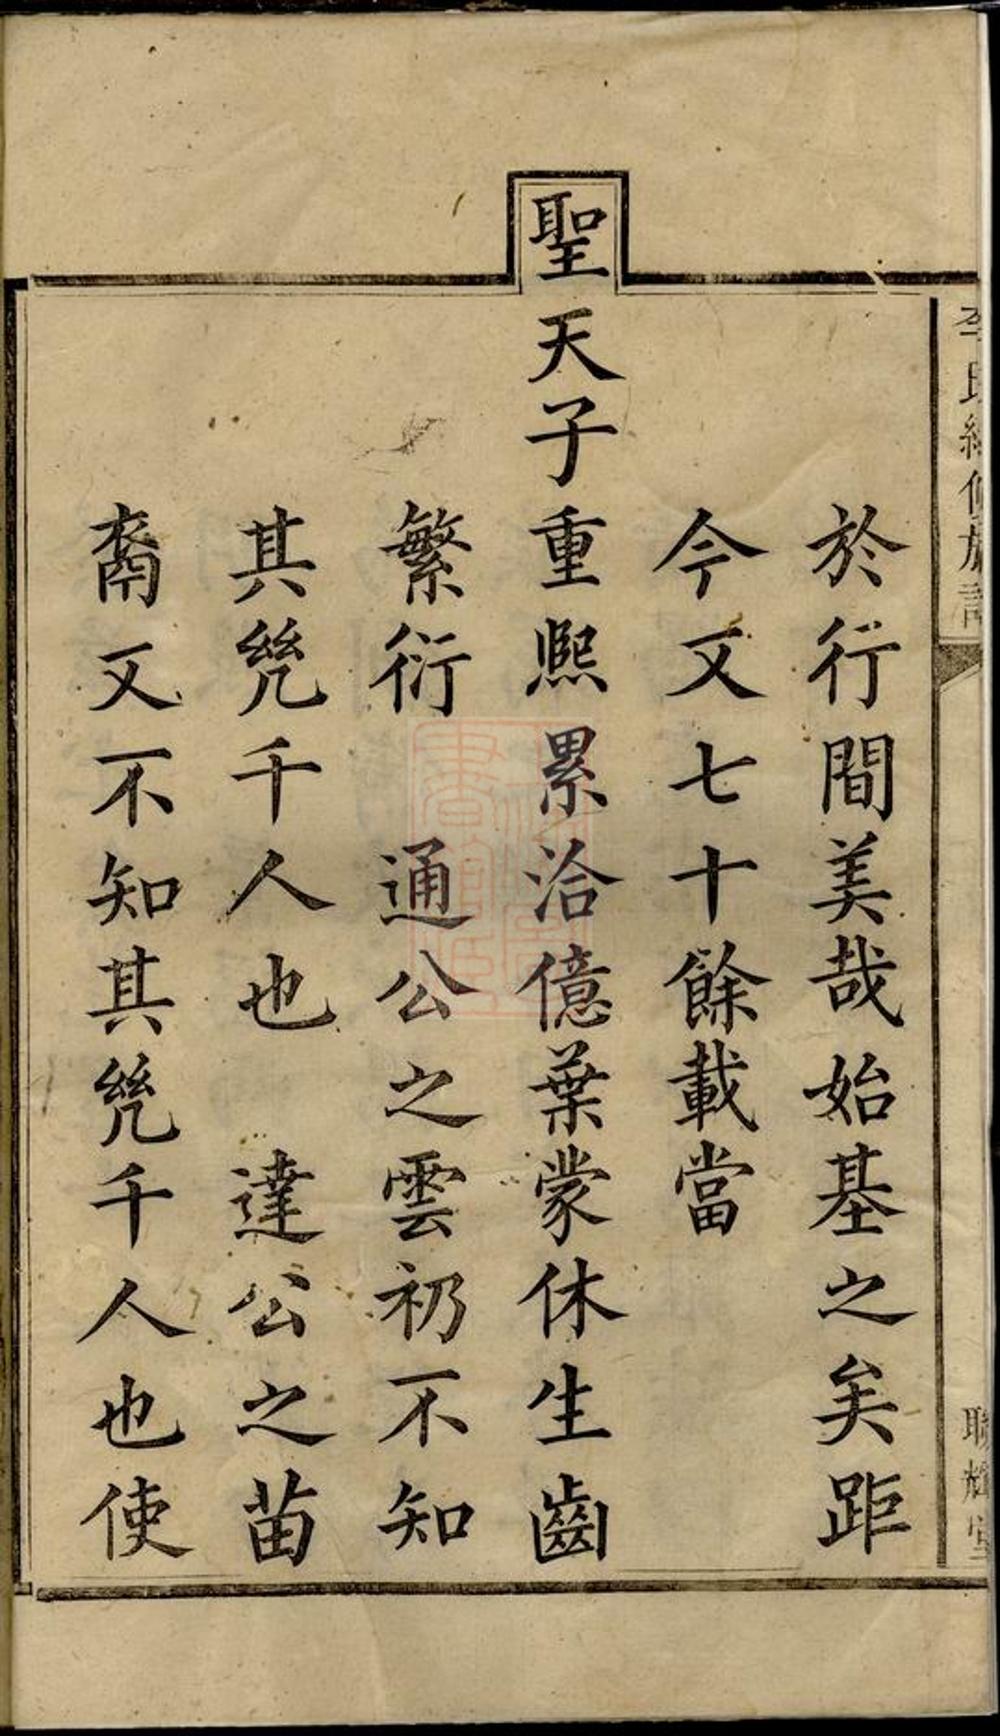 於行間美哉始基之矣距
今又七十餘載當
聖天子重熙累洽億葉蒙休生齒
繁衍 通公之雲礽不知
其凳千人也 達公之苗
裔又不知其凳千人也使
李氏續修族譜
聯